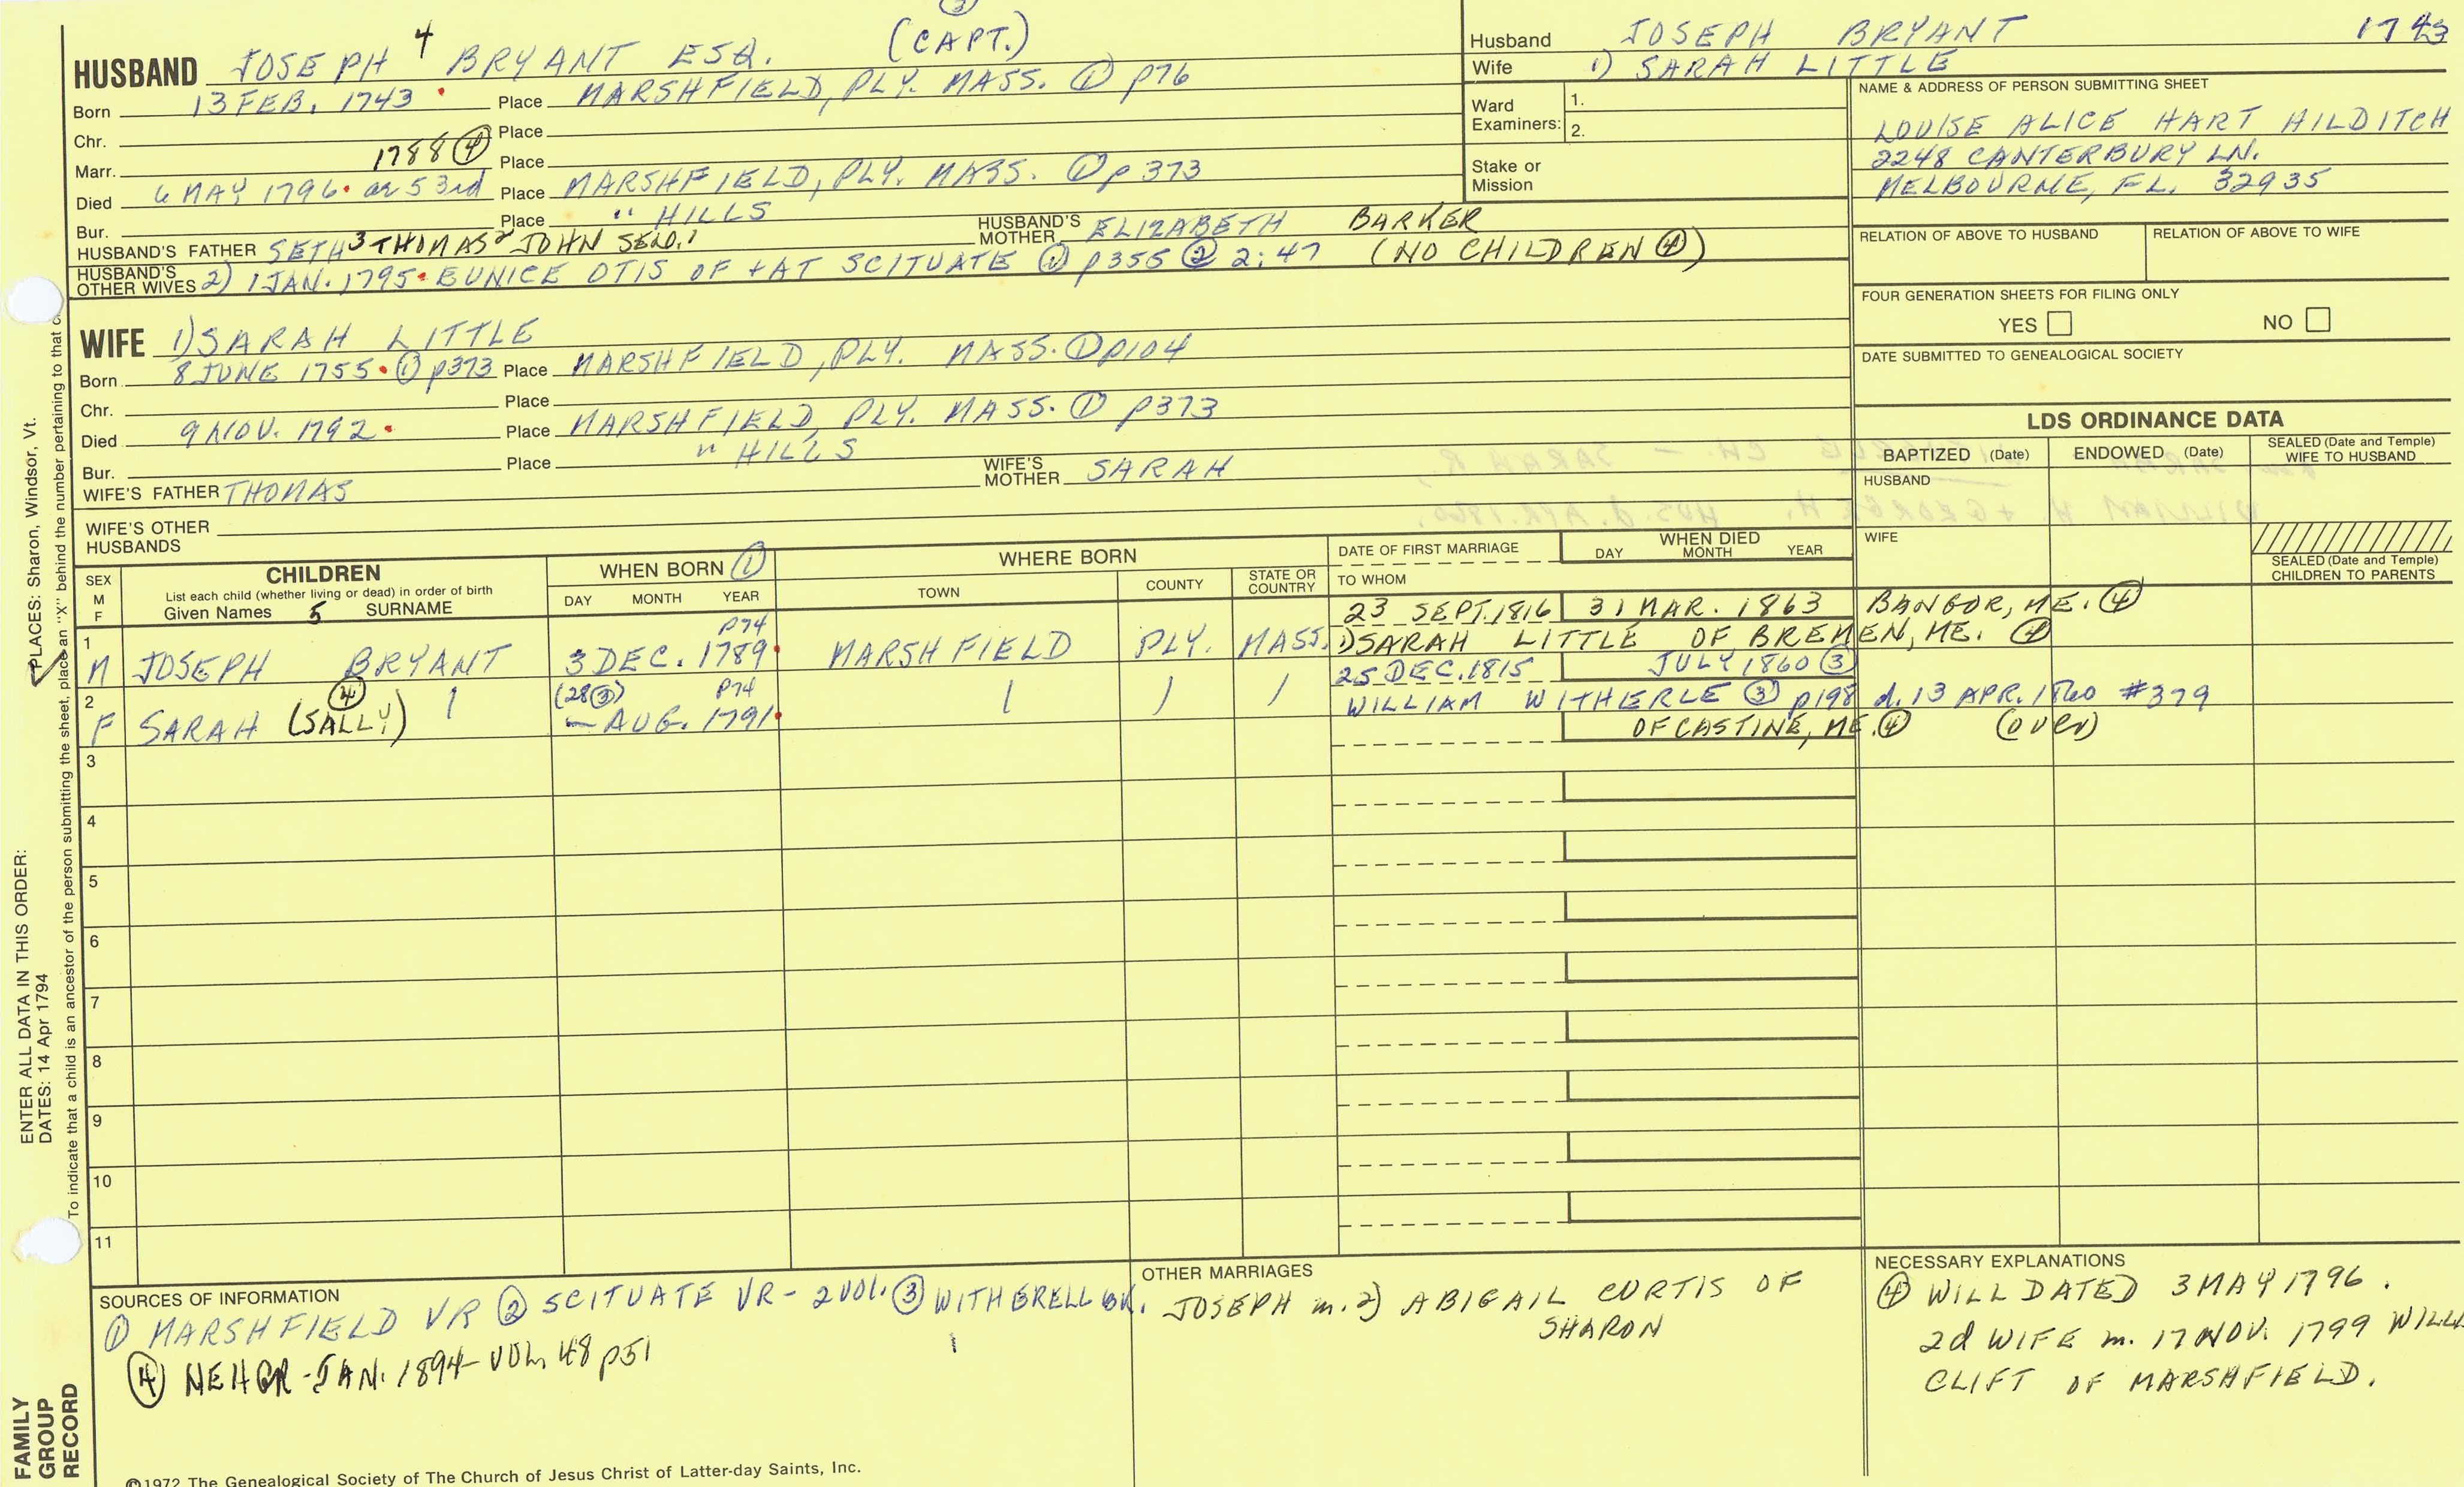 ③
HUSBAND JOSEPH 4 BRYANT ESQ. (CAPT.)
Born 13 FEB. 1743 Place MARSHFIELD, PLY. MASS. ① p76
Chr. Place
Marr. 1788 ④ Place
Died 6 MAY 1796 Place MARSHFIELD, PLY. MASS. ① p373
Bur. Place " HILLS
HUSBAND'S FATHER SETH 3 THOMAS 2 JOHN SEN. 1 HUSBAND'S MOTHER ELIZABETH BARKER
HUSBAND'S OTHER WIVES 2) 1 JAN. 1795 EUNICE OTIS OF + AT SCITUATE ① p355 ② 2:47 (NO CHILDREN ④)
WIFE 1) SARAH LITTLE
Born 8 JUNE 1755 ① p373 Place MARSHFIELD, PLY. MASS. ① p104
Chr. Place
Died 9 NOV. 1792 Place MARSHFIELD, PLY. MASS. ① p373
Bur. Place " HILLS
WIFE'S FATHER THOMAS WIFE'S MOTHER SARAH
WIFE'S OTHER HUSBANDS
Husband JOSEPH BRYANT 1743
Wife 1) SARAH LITTLE
Ward Examiners: 1.
2.
Stake or Mission
NAME & ADDRESS OF PERSON SUBMITTING SHEET
LOUISE ALICE HART HILDITCH
2248 CANTERBURY LN.
MELBOURNE, FL. 32935
RELATION OF ABOVE TO HUSBAND RELATION OF ABOVE TO WIFE
FOUR GENERATION SHEETS FOR FILING ONLY
YES NO
DATE SUBMITTED TO GENEALOGICAL SOCIETY
LDS ORDINANCE DATA
BAPTIZED (Date) ENDOWED (Date) SEALED (Date and Temple) WIFE TO HUSBAND
HUSBAND
WIFE
SEALED (Date and Temple) CHILDREN TO PARENTS
SEX M F CHILDREN WHEN BORN ① WHERE BORN DATE OF FIRST MARRIAGE WHEN DIED
List each child (whether living or dead) in order of birth
Given Names 5 SURNAME DAY MONTH YEAR TOWN COUNTY STATE OR COUNTRY TO WHOM DAY MONTH YEAR
p74 23 SEPT. 1816 31 MAR. 1863 BANGOR, ME. ④
1 M JOSEPH BRYANT 3 DEC. 1789 MARSHFIELD PLY. MASS. 1) SARAH LITTLE OF BREMEN, ME. ④
④ (28 ③) p74 25 DEC. 1815 JULY 1860 ③
2 F SARAH (SALLY) AUG. 1791 WILLIAM WITHERLE ③ p198 d. 13 APR. 1860 #379
OF CASTINE, ME. ④ (OVER)
3
4
5
6
7
8
9
10
11
SOURCES OF INFORMATION
① MARSHFIELD VR ② SCITUATE VR - 2 VOL. ③ WITHERELL BK.
④ NEHGR - JAN. 1894 - VOL. 48 p51
OTHER MARRIAGES
JOSEPH m. 2) ABIGAIL CURTIS OF
SHARON
NECESSARY EXPLANATIONS
④ WILL DATED 3 MAY 1796.
2d WIFE m. 17 NOV. 1799 WILL
CLIFT OF MARSHFIELD.
©1972 The Genealogical Society of The Church of Jesus Christ of Latter-day Saints, Inc.
FAMILY GROUP RECORD
ENTER ALL DATA IN THIS ORDER:
DATES: 14 Apr 1794
PLACES: Sharon, Windsor, Vt.
To indicate that a child is an ancestor of the person submitting the sheet, place an "X" behind the number pertaining to that